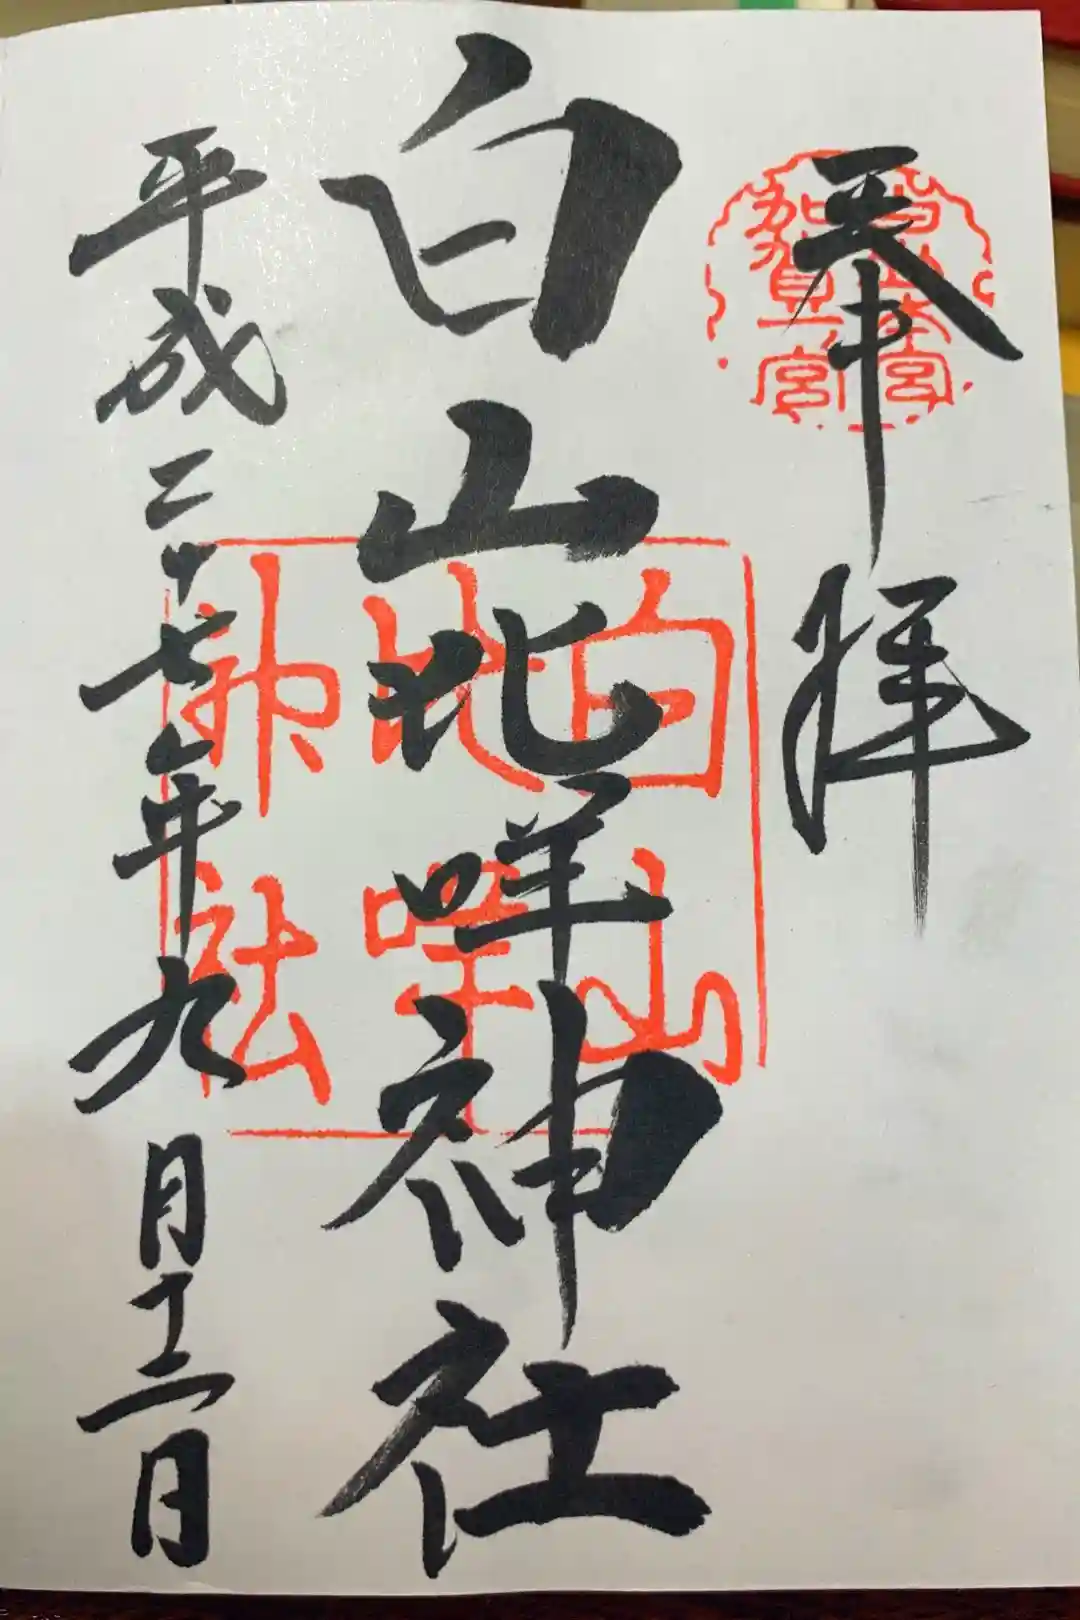 奉拝
白山本宮
加賀一ノ宮
白山比咩神社
白山
比咩
神社
平成二十七年九月十二日